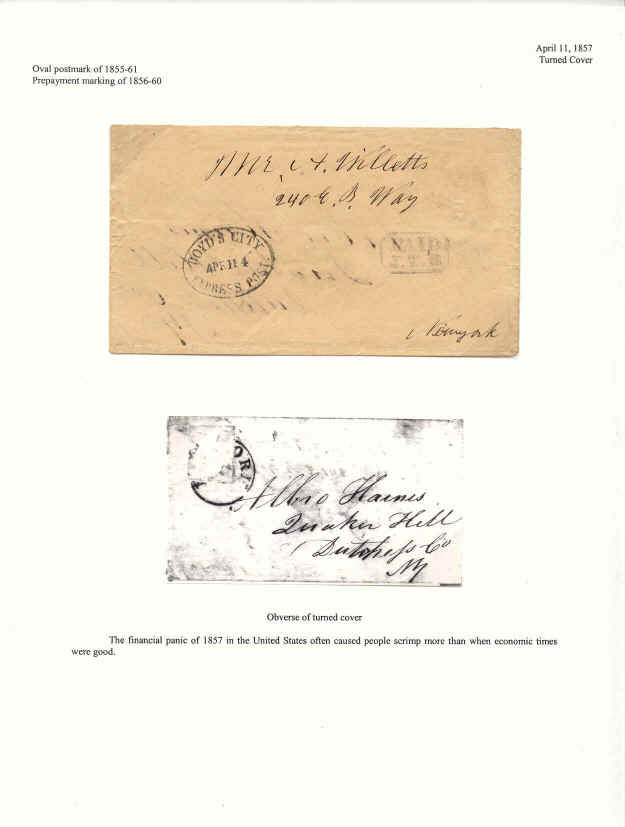 April 11, 1857
Turned Cover
Oval postmark of 1855-61
Prepayment marking of 1856-60
Mr A. Willetts
240 E. B. Way
BOYD'S CITY
APRIL 4
EXPRESS POST
PAID
New york
ORK
Albro Haines
Quaker Hill
Dutchess Co
NY
Obverse of turned cover
The financial panic of 1857 in the United States often caused people scrimp more than when economic times
were good.